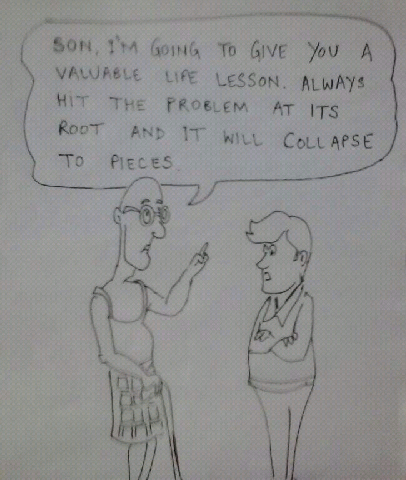 SON, I'M GOING TO GIVE YOU A
VALUABLE LIFE LESSON. ALWAYS
HIT THE PROBLEM AT ITS
ROOT AND IT WILL COLLAPSE
TO PIECES.